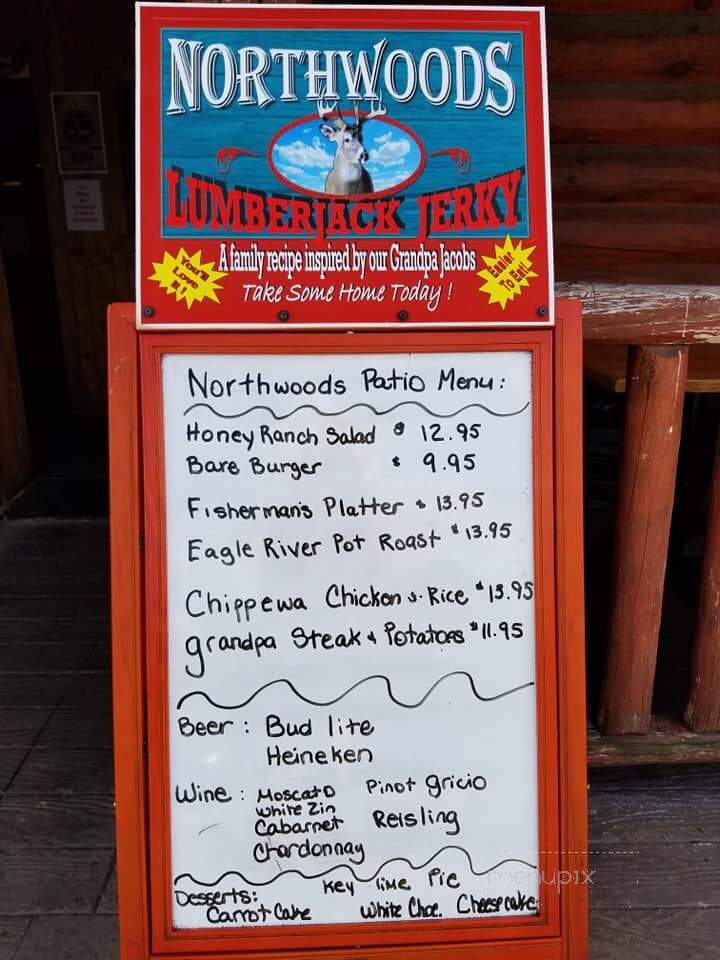 NORTHWOODS
LUMBERJACK JERKY
You'll Love It!
A family recipe inspired by our Grandpa Jacobs
Easier To Eat..
Take Some Home Today!
Northwoods Patio Menu:
Honey Ranch Salad $ 12.95
Bare Burger $ 9.95
Fisherman's Platter $ 13.95
Eagle River Pot Roast $13.95
Chippewa Chicken & Rice $13.95
grandpa Steak & Potatoes $11.95
Beer: Bud lite
Heineken
Wine: Moscato Pinot gricio
White Zin
Cabarnet Reisling
Chardonnay
Desserts: Key lime Pie
Carrot Cake White Choc. Cheesecake
menupix